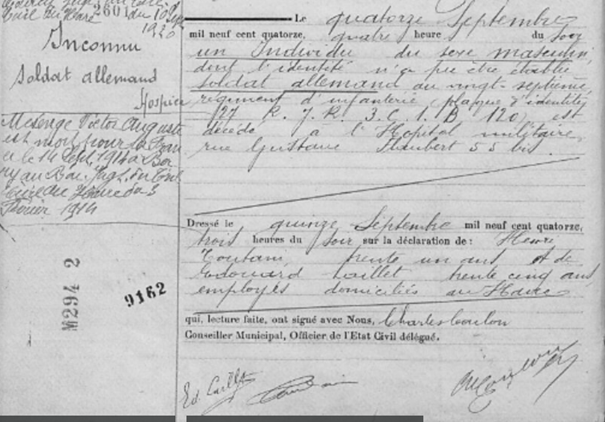 2601 du 10 Sept
1920
Inconnu
Soldat allemand
Hospice
Mesenge Victor Auguste
est mort pour la
le 14 Sept. 1914 à
au Jug. du
du Havre du 5
Février 1914
M294 2
9162
Le quatorze Septembre
mil neuf cent quatorze, quatre heure du Soir
un Individu du sexe masculin,
dont l'identité n'a pu être établie
soldat allemand au vingt-septième
régiment d'infanterie, plaque d'identité,
R. J. R. 3. C. 1. B 120, est
décédé à l'Hôpital militaire,
rue Gustave Flaubert 55 bis.
Dressé le quinze Septembre mil neuf cent quatorze,
trois heures du Soir sur la déclaration de : Henri
trente un ans et de
Edouard Caillet trente cinq ans
employés domiciliés au Havre
qui, lecture faite, ont signé avec Nous, Charles Coulon
Conseiller Municipal, Officier de l'Etat Civil délégué.
Ed. Caillet